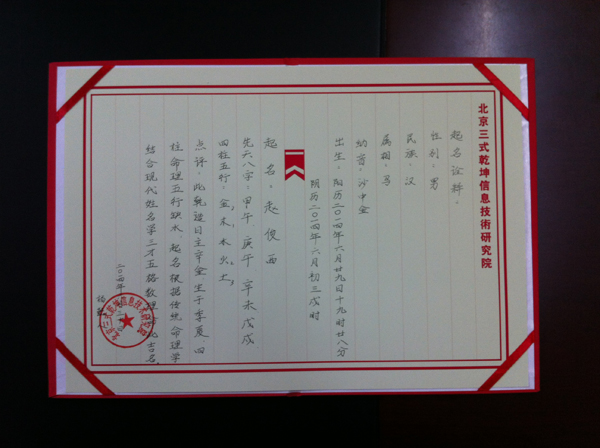 北京三式乾坤信息技術研究院
起名诠释:
性别:男
民族:汉
属相:马
纳音:沙中金
出生:阳历二〇一四年六月廿九日十九时廿八分
阴历二〇一四年六月初三戌时
起名:赵俊西
先天八字:甲午 庚午 辛未 戊戌
四柱五行:金 木 火 土
点评:此乾造日主辛金生于季夏四
柱命理五行缺水 起名根据传统命理学
结合现代姓名学三才五格数理 吉名
北京三式乾坤信息技术研究院